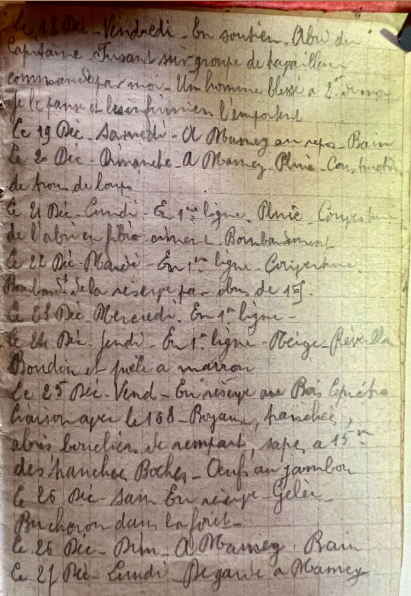 Le 18 Déc - Vendredi - En soutien. Abri du
Capitaine. Fusant sur groupe de travailleurs
commandé par moi. Un homme blessé à 2m de moi
Je le panse et les infirmiers l'emportent
Le 19 Déc - Samedi - A Mamey au repos - Bain
Le 20 Déc - Dimanche - A Mamey Pluie - Construction
de trous de loups
Le 21 Déc - Lundi - En 1ère ligne. Pluie.
de l'abri en Bombardement
Le 22 Déc - Mardi - En 1ère ligne -
Bombardt de la réserve par obus de 105.
Le 23 Déc. Mercredi. En 1ère ligne -
Le 24 Déc. Jeudi - En 1ère ligne - Neige - Réveillon
Boudin et à marron
Le 25 Déc - Vend - En réserve au Bois
Liaison avec le 168 - Boyaux, tranchées,
abris boucliers de rempart, sapes à 15m
des tranchées Boches - Oeufs au jambon
Le 26 Déc - Sam En réserve - Gelée -
Bucheron dans la forêt -
Le 26 Déc - Dim - A Mamey Bain
Le 27 Déc - Lundi De garde à Mamey